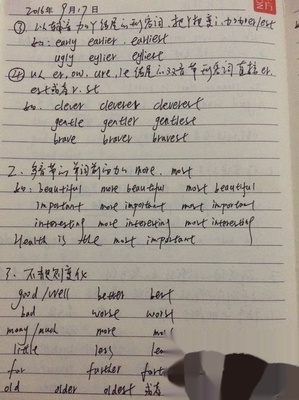 2016年9月17日
③ 以辅音加y结尾的形容词,把y变i,加er/est
如: early earlier earliest
ugly uglier ugliest
④ 以 er, ow, ure, le 结尾的双音节形容词直接er.
est或者r.st
如: clever cleverer cleverest
gentle gentler gentlest
brave braver bravest
2. 多音节的单词前面加 more. most
如: beautiful more beautiful most beautiful
important more important most important
interesting more interesting most interesting
Health is the most important
3. 不规则变化
good/well better best
bad worse worst
many/much more mos
little less lea
far further furt
old older oldest 或者